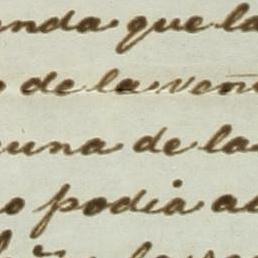 nda que la
de la ven
una de la
o podia a